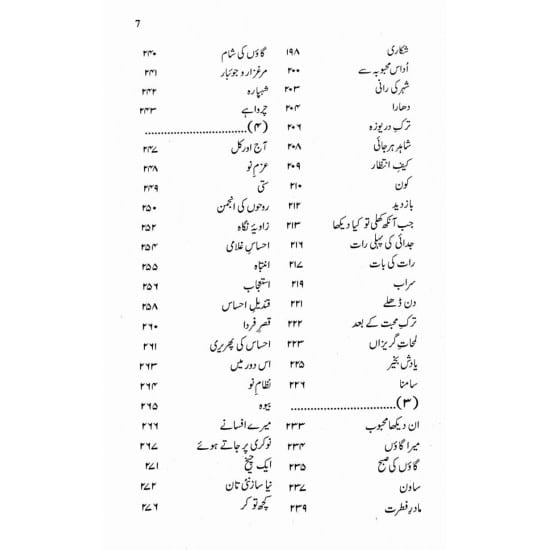 7
شکاری ۱۹۸
اُداس محبوبہ سے ۲۰۰
شہر کی رانی ۲۰۳
دھارا ۲۰۴
ترکِ دریوزہ ۲۰۶
شاہدِ ہرجائی ۲۰۸
کیفِ انتظار ۲۰۹
کون ۲۱۰
بازدید ۲۱۲
جب آنکھ کھلی تو کیا دیکھا ۲۱۳
جدائی کی پہلی رات ۲۱۶
رات کی بات ۲۱۷
سراب ۲۱۹
دن ڈھلے ۲۲۱
ترکِ محبت کے بعد ۲۲۲
لمحاتِ گریزاں ۲۲۳
یادش بخیر ۲۲۵
سامنا ۲۲۶
(۳)
ان دیکھا محبوب ۲۳۳
میرا گاؤں ۲۳۴
گاؤں کی صبح ۲۳۵
ساون ۲۳۷
مادرِ فطرت ۲۳۹
گاؤں کی شام ۲۴۰
مرغزار و جوئبار ۲۴۱
شہپارہ ۲۴۲
چرواہے ۲۴۳
(۴)
آج اور کل ۲۴۷
عزمِ نو ۲۴۸
ستی ۲۴۹
روحوں کی انجمن ۲۵۰
زاویۂ نگاہ ۲۵۲
احساسِ غلامی ۲۵۴
انتباہ ۲۵۵
استعجاب ۲۵۶
قندیلِ احساس ۲۵۸
قصرِ فردا ۲۶۰
احساس کی پھریری ۲۶۱
اس دور میں ۲۶۳
نظامِ نو ۲۶۴
بیوہ ۲۶۵
میرے افسانے ۲۶۶
نوکری پر جاتے ہوئے ۲۶۷
ایک چیخ ۲۷۱
نیا ساز نئی تان ۲۷۲
کچھ تو کر ۲۷۶